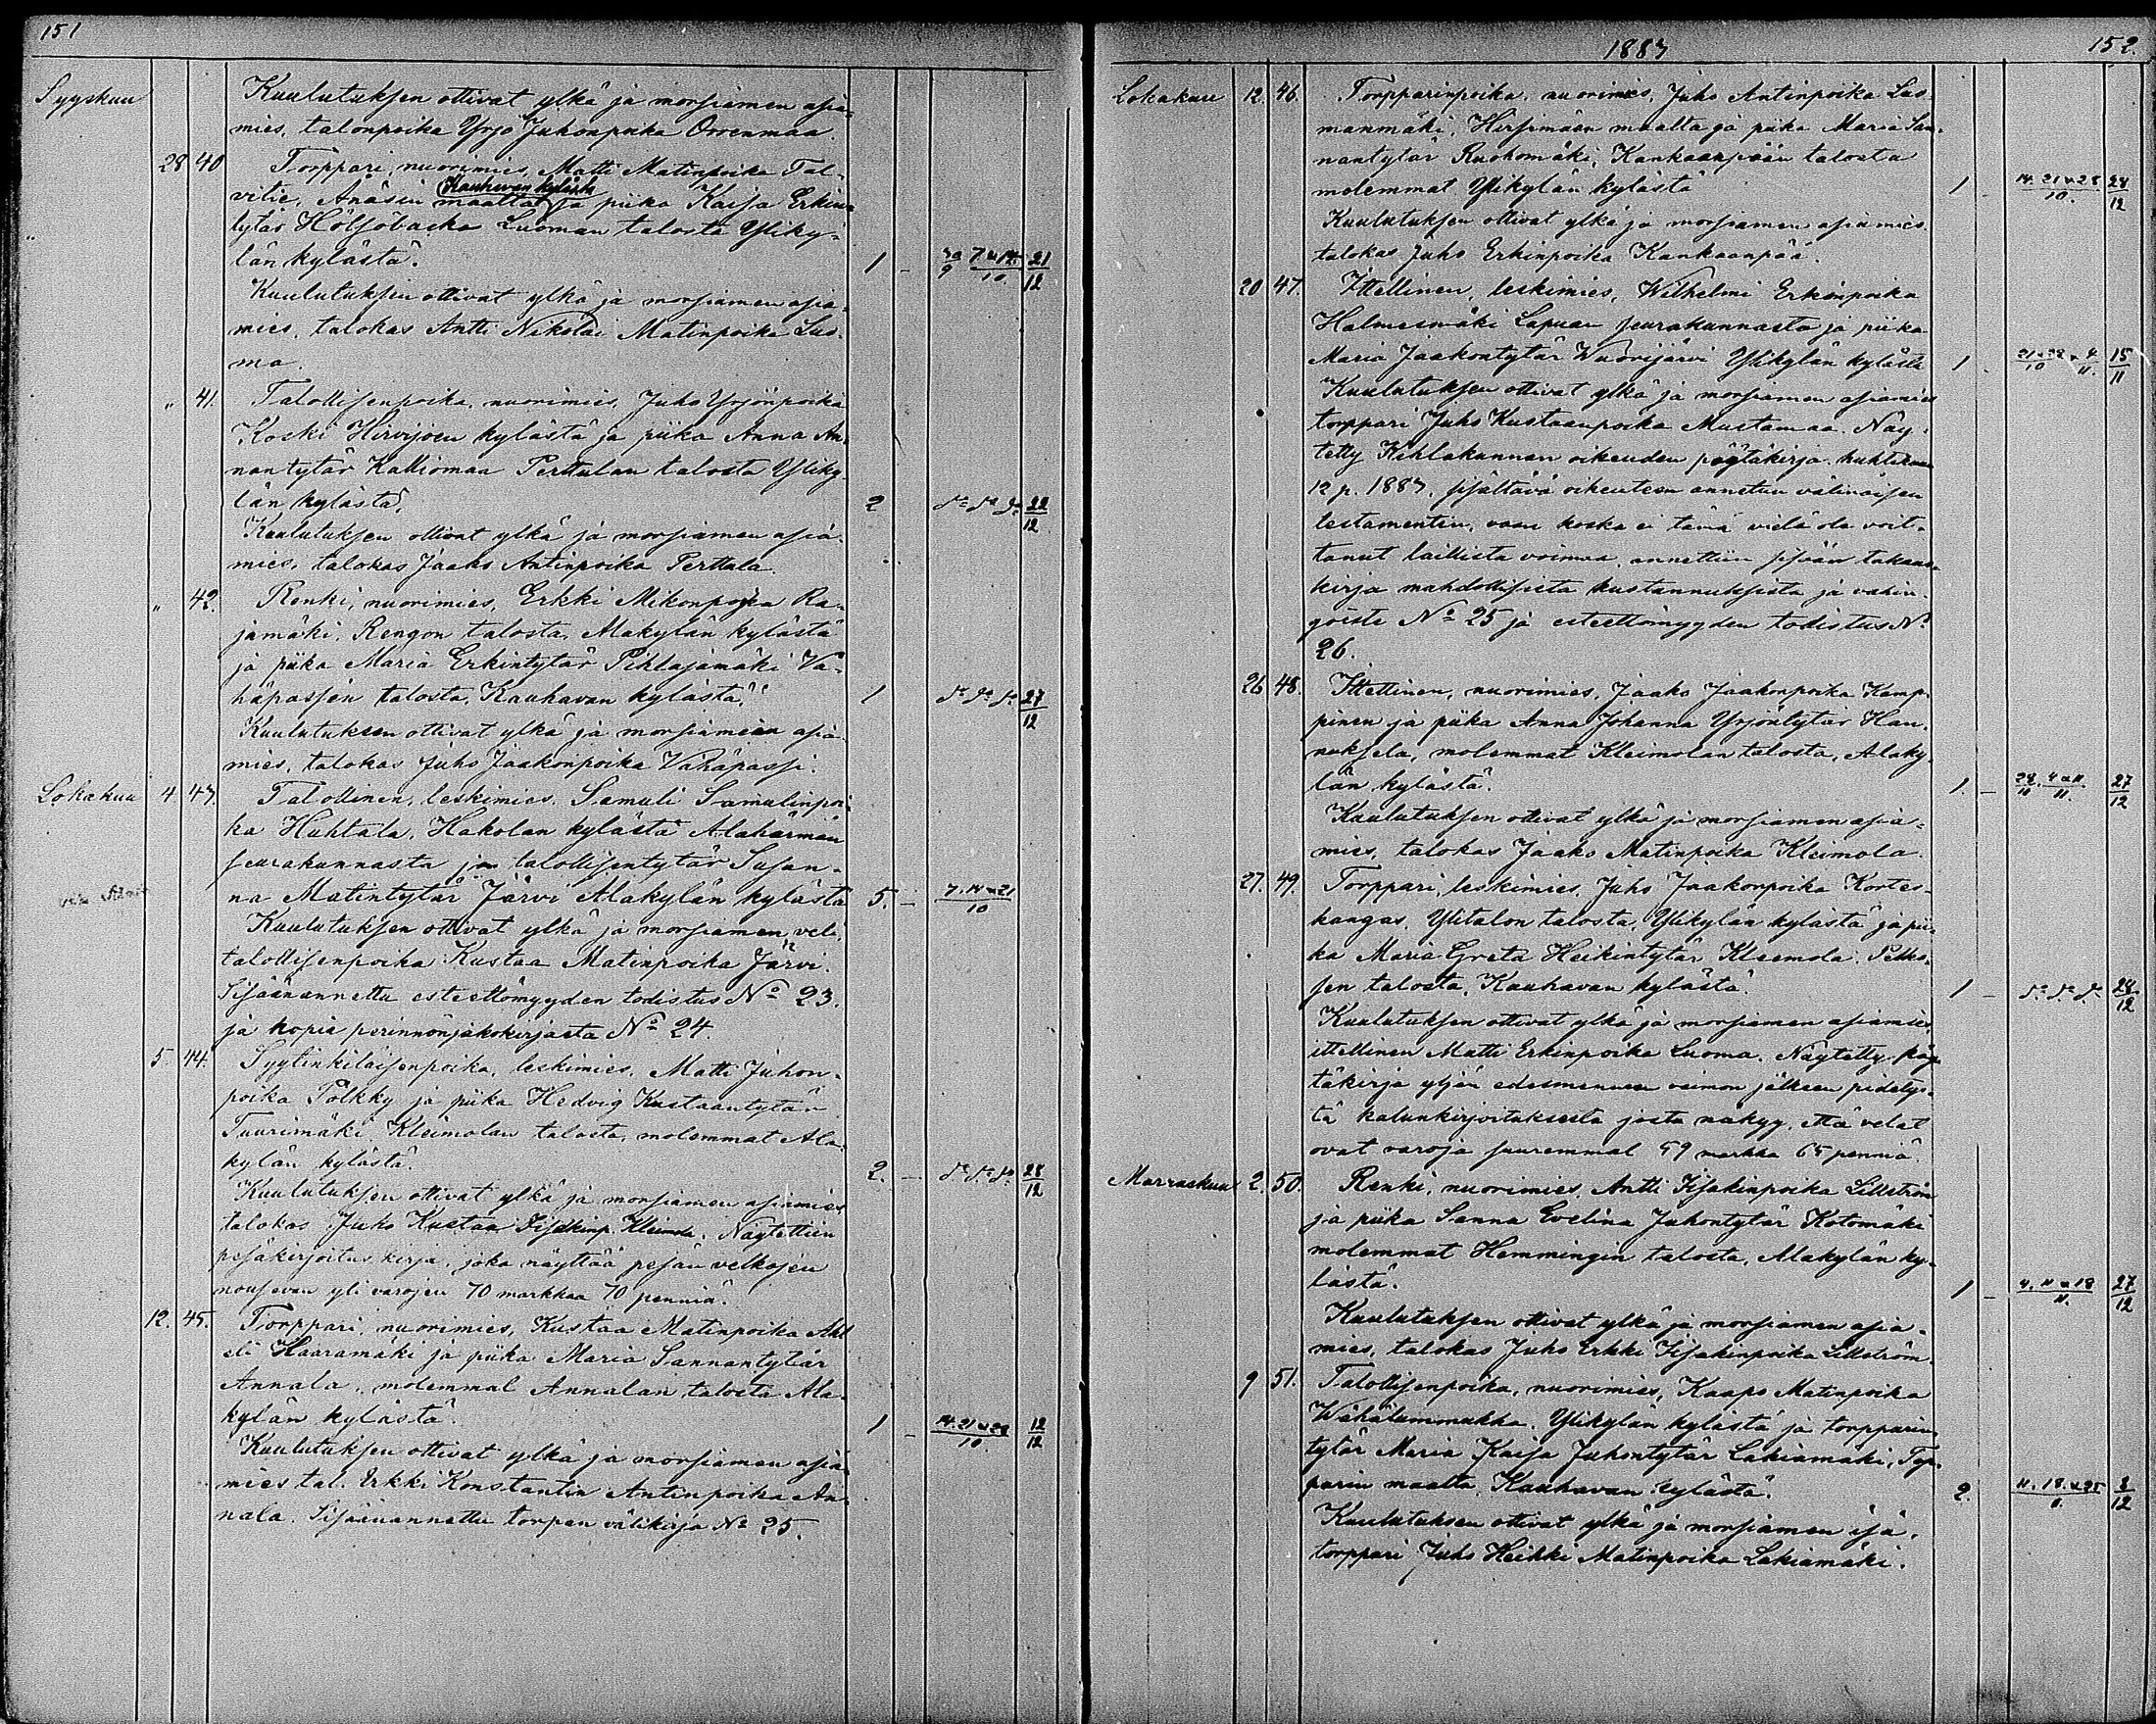 151
Syyskuu Kuulutuksen ottivat ylkä ja morsiamen asia-
mies, talonpoika Yrjö Juhonpoika Orrenmaa.
28 40 Torppari, nuorimies, Matti Matinpoika Tal-
Kauhavan kylästä
vitie, Änäsin maalta ja piika Kaisa Erkin-
tytär Höljöbacka Luoman talosta Yliky-
län kylästä. 1 – 30/9 7 u 14./10 21/12
Kuulutuksen ottivat ylkä ja morsiamen asia-
mies, talokas Antti Nikolai Matinpoika Luo-
ma.
" 41. Talollisenpoika, nuorimies, Juho Yrjönpoika
Koski Hirvijoen kylästä ja piika Anna An-
nantytär Kalliomaa Perttulan talosta Yliky-
län kylästä. 2 do do do 22/12
Kuulutuksen ottivat ylkä ja morsiamen asia-
mies, talokas Jaako Antinpoika Perttula.
" 42. Renki, nuorimies, Erkki Mikonpoika Ra-
jamäki, Rengon talosta, Alakylän kylästä
ja piika Maria Erkintytär Pihlajamäki Vä-
häpassin talosta, Kauhavan kylästä. 1 do do do 27/12
Kuulutuksen ottivat ylkä ja morsiamen asia-
mies, talokas Juho Jaakonpoika Vähäpassi.
Lokakuu 4 43. Talollinen, leskimies, Samuli Samulinpoi-
ka Huhtala, Hakolan kylästä Alahärmän
seurakunnasta ja talollisentytär Susan-
na Matintytär Järvi Alakylän kylästä 5. – 7. 14 u 21/10
Kuulutuksen ottivat ylkä ja morsiamen veli,
talollisenpoika Kustaa Matinpoika Järvi.
Sisäänannettu esteettömyyden todistus No 23.
ja kopia perinnönjakokirjasta No 24.
5. 44. Syytinkiläisenpoika, leskimies, Matti Juhon-
poika Pölkky ja piika Hedvig Kustaantytär
Tuurimäki Kleimolan talosta, molemmat Ala-
kylän kylästä. 2. – do do do 28/12
Kuulutuksen ottivat ylkä ja morsiamen asiamies
talokas Juho Kustaa Iisakinp. Kleimola. Näytettiin
pesäkirjoitus kirja, joka näyttää pesän velkojen
nousevan yli varojen 70 markkaa 70 penniä.
12. 45. Torppari, nuorimies, Kustaa Matinpoika Ahl
eli Haaramäki ja piika Maria Sannantytär
Annala, molemmat Annalan talosta Ala-
kylän kylästä. 1 – 14. 21 u 28/10. 12/12
Kuulutuksen ottivat ylkä ja morsiamen asia-
mies tal. Erkki Konstantin Antinpoika An-
nala. Sisäänannettu torpan välikirja No 25.
1883 152.
Lokakuu 12. 46. Torpparinpoika, nuorimies, Juho Antinpoika Luo-
manmäki, Hirsimäen maalta ja piika Maria San-
nantytär Ruohomäki, Kankaanpään talosta
molemmat Ylikylän kylästä 1 – 14. 21 u 28/10. 28/12
Kuulutuksen ottivat ylkä ja morsiamen asiamies
talokas Juho Erkinpoika Kankaanpää.
20 47. Ittellinen, leskimies, Wilhelmi Erkinpoika
Halmesmäki Lapuan seurakunnasta ja piika
Maria Jaakontytär Wuorijärvi Ylikylän kylästä 1. 21 u 28/10 u 4/11. 15/11
Kuulutuksen ottivat ylkä ja morsiamen asiamies
torppari Juho Kustaanpoika Mustamaa. Näy-
tetty Kihlakunnan oikeuden pöytäkirja huhtikuun
12 p. 1883, sisältävä oikeuteen annetun välinäisen
testamentin, vaan koska ei tämä vielä ole voit-
tanut laillista voimaa, annettiin sisään takaus-
kirja mahdollisista kustannuksista ja vahin-
goista No 25 ja esteettömyyden todistus No
26.
26 48. Ittellinen, nuorimies, Jaako Jaakonpoika Kamp-
pinen ja piika Anna Johanna Yrjöntytär Han-
nuksela, molemmat Kleimolan talosta, Alaky-
län kylästä. 1. – 28./10 4 u 11/11. 27/12
Kuulutuksen ottivat ylkä ja morsiamen asia-
mies, talokas Jaako Matinpoika Kleimola.
27. 49. Torppari, leskimies, Juho Jaakonpoika Kortes-
kangas, Ylitalon talosta, Ylikylän kylästä ja pii-
ka Maria Greta Heikintytär Kleemola, Pekko-
sen talosta, Kauhavan kylästä. 1 – do do do 28/12
Kuulutuksen ottivat ylkä ja morsiamen asiamies,
ittellinen Matti Erkinpoika Luoma. Näytetty pöy-
täkirja yljän edesmenneen vaimon jälkeen pidetys-
tä kalunkirjoituksesta josta näkyy, että velat
ovat varoja suuremmat 59 markka 65 penniä.
Marraskuu 2. 50. Renki, nuorimies, Antti Iisakinpoika Lillström
ja piika Sanna Evelina Juhontytär Kotomäki
molemmat Hemmingin talosta, Alakylän ky-
lästä. 1 – 4. 11 u 18/11. 27/12
Kuulutuksen ottivat ylkä ja morsiamen asia-
mies, talokas Juho Erkki Iisakinpoika Lillström.
9 51. Talollisenpoika, nuorimies, Kaapo Matinpoika
Wähälummukka, Ylikylän kylästä ja torpparin-
tytär Maria Kaisa Juhontytär Lakiamäki, Top-
parin maalta, Kauhavan kylästä. 2. 11. 18. u 25/11. 8/12
Kuulutuksen ottivat ylkä ja morsiamen isä,
torppari Juho Heikki Matinpoika Lakiamäki.